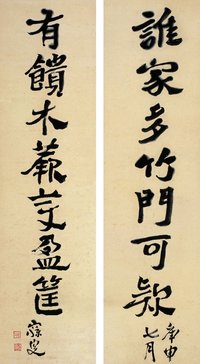 誰家多竹門可欵
庚申
七月
有饋木蕨盈筐
寐叟